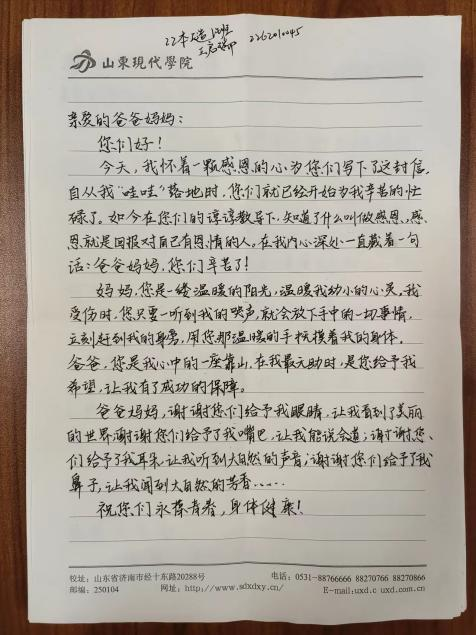 22本工造12班
2262010045
山東現代學院
亲爱的爸爸妈妈：
您们好！
今天，我怀着一颗感恩的心为您们写下了这封信。
自从我"哇哇"落地时，您们就已经开始为我辛苦的忙
碌了。如今在您们的谆谆教导下，知道了什么叫做感恩，感
恩就是回报对自己有恩情的人。在我内心深处一直藏着一句
话：爸爸妈妈，您们辛苦了！
妈妈，您是一缕温暖的阳光，温暖我幼小的心灵。我
受伤时，您只要一听到我的哭声，就会放下手中的一切事情，
立刻赶到我的身旁，用您那温暖的手抚摸着我的身体。
爸爸，您是我心中的一座靠山，在我最无助时，是您给予我
希望，让我有了成功的保障。
爸爸妈妈，谢谢您们给予我眼睛，让我看到了美丽
的世界；谢谢您们给予了我嘴巴，让我能说会道；谢谢您
们给予了我耳朵，让我听到大自然的声音；谢谢您们给予了我
鼻子，让我闻到大自然的芳香……
祝您们永葆青春，身体健康！
校址：山东省济南市经十东路20288号 电话：0531-88766666 88270766 88270866
邮编：250104 网址：http://www.sdxdxy.cn/ E-mail:uxd.c uxd.com.cn